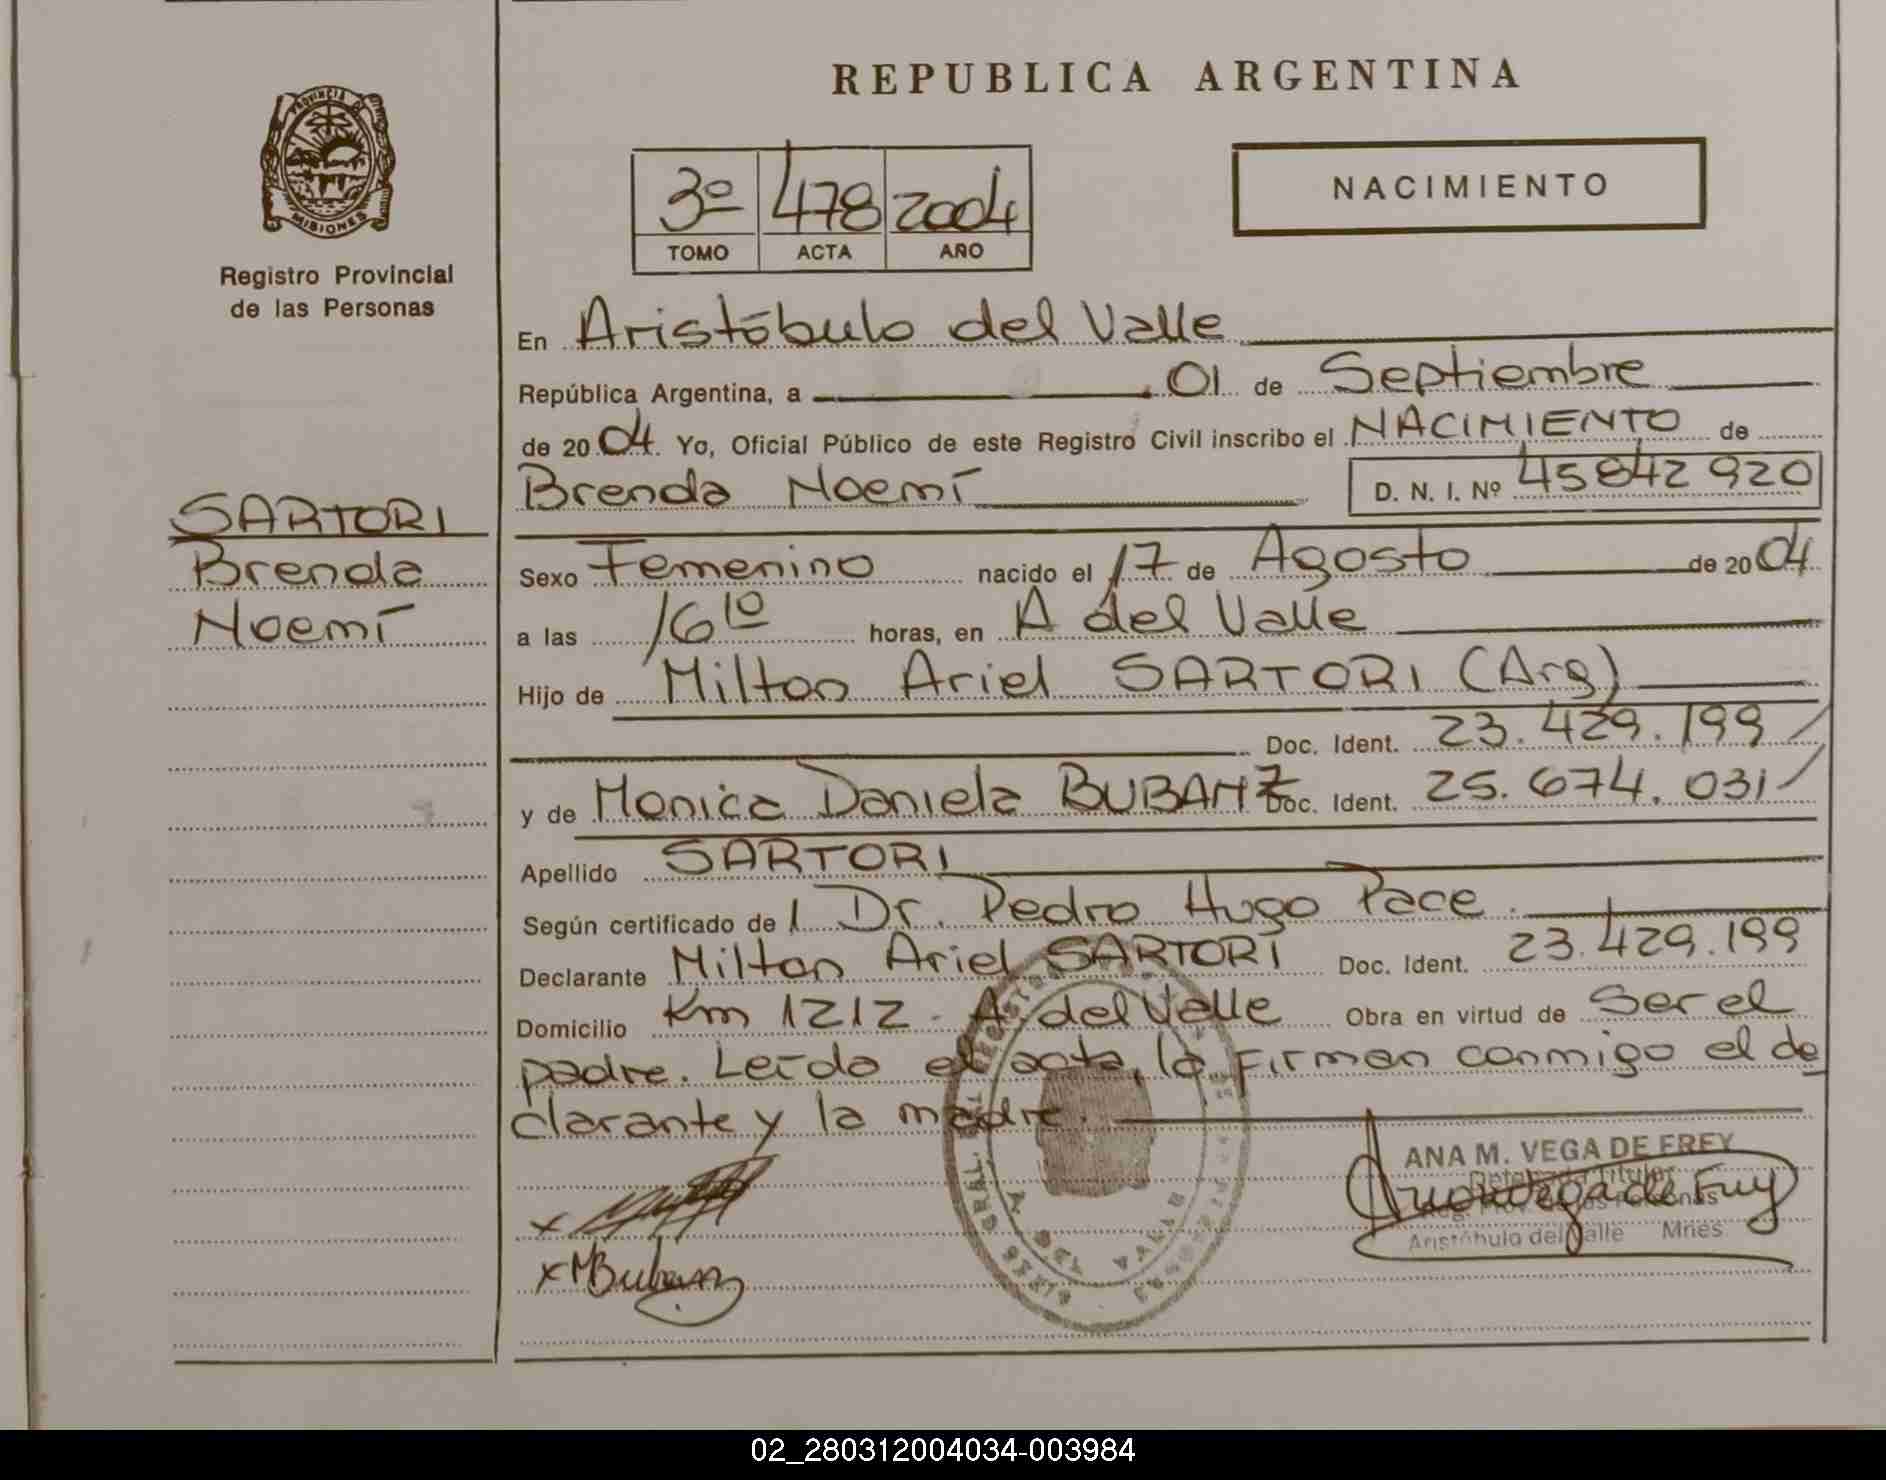 REPUBLICA ARGENTINA
PROVINCIA DE
MISIONES
Registro Provincial
de las Personas
3º 478 2004
TOMO ACTA AÑO
NACIMIENTO
En Aristóbulo del Valle
República Argentina, a 01 de Septiembre
de 2004. Yo, Oficial Público de este Registro Civil inscribo el NACIMIENTO de
Brenda Noemí D. N. I. Nº 45842920
SARTORI
Brenda
Noemí
Sexo Femenino nacido el 17 de Agosto de 2004
a las 16 10 horas, en A del Valle
Hijo de Milton Ariel SARTORI (Arg)
Doc. Ident. 23.429.199
y de Monica Daniela BUBANZ Doc. Ident. 25.674.031
Apellido SARTORI
Según certificado de l Dr. Pedro Hugo Pace.
Declarante Milton Ariel SARTORI Doc. Ident. 23.429.199
Domicilio Km 1212 - A. del Valle Obra en virtud de Ser el
padre. Leída el acta, la firman conmigo el de
clarante y la madre.
ANA M. VEGA DE FREY
Aristóbulo del Valle Mnes
x MBubanz
02_280312004034-003984